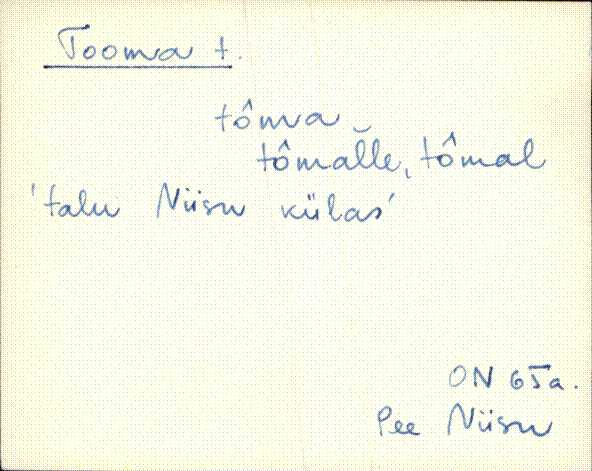 Tooma t.
tôma
tômal̆l̆e, tômal
'talu Niisu külas'
ON 65a.
Pee Niisu